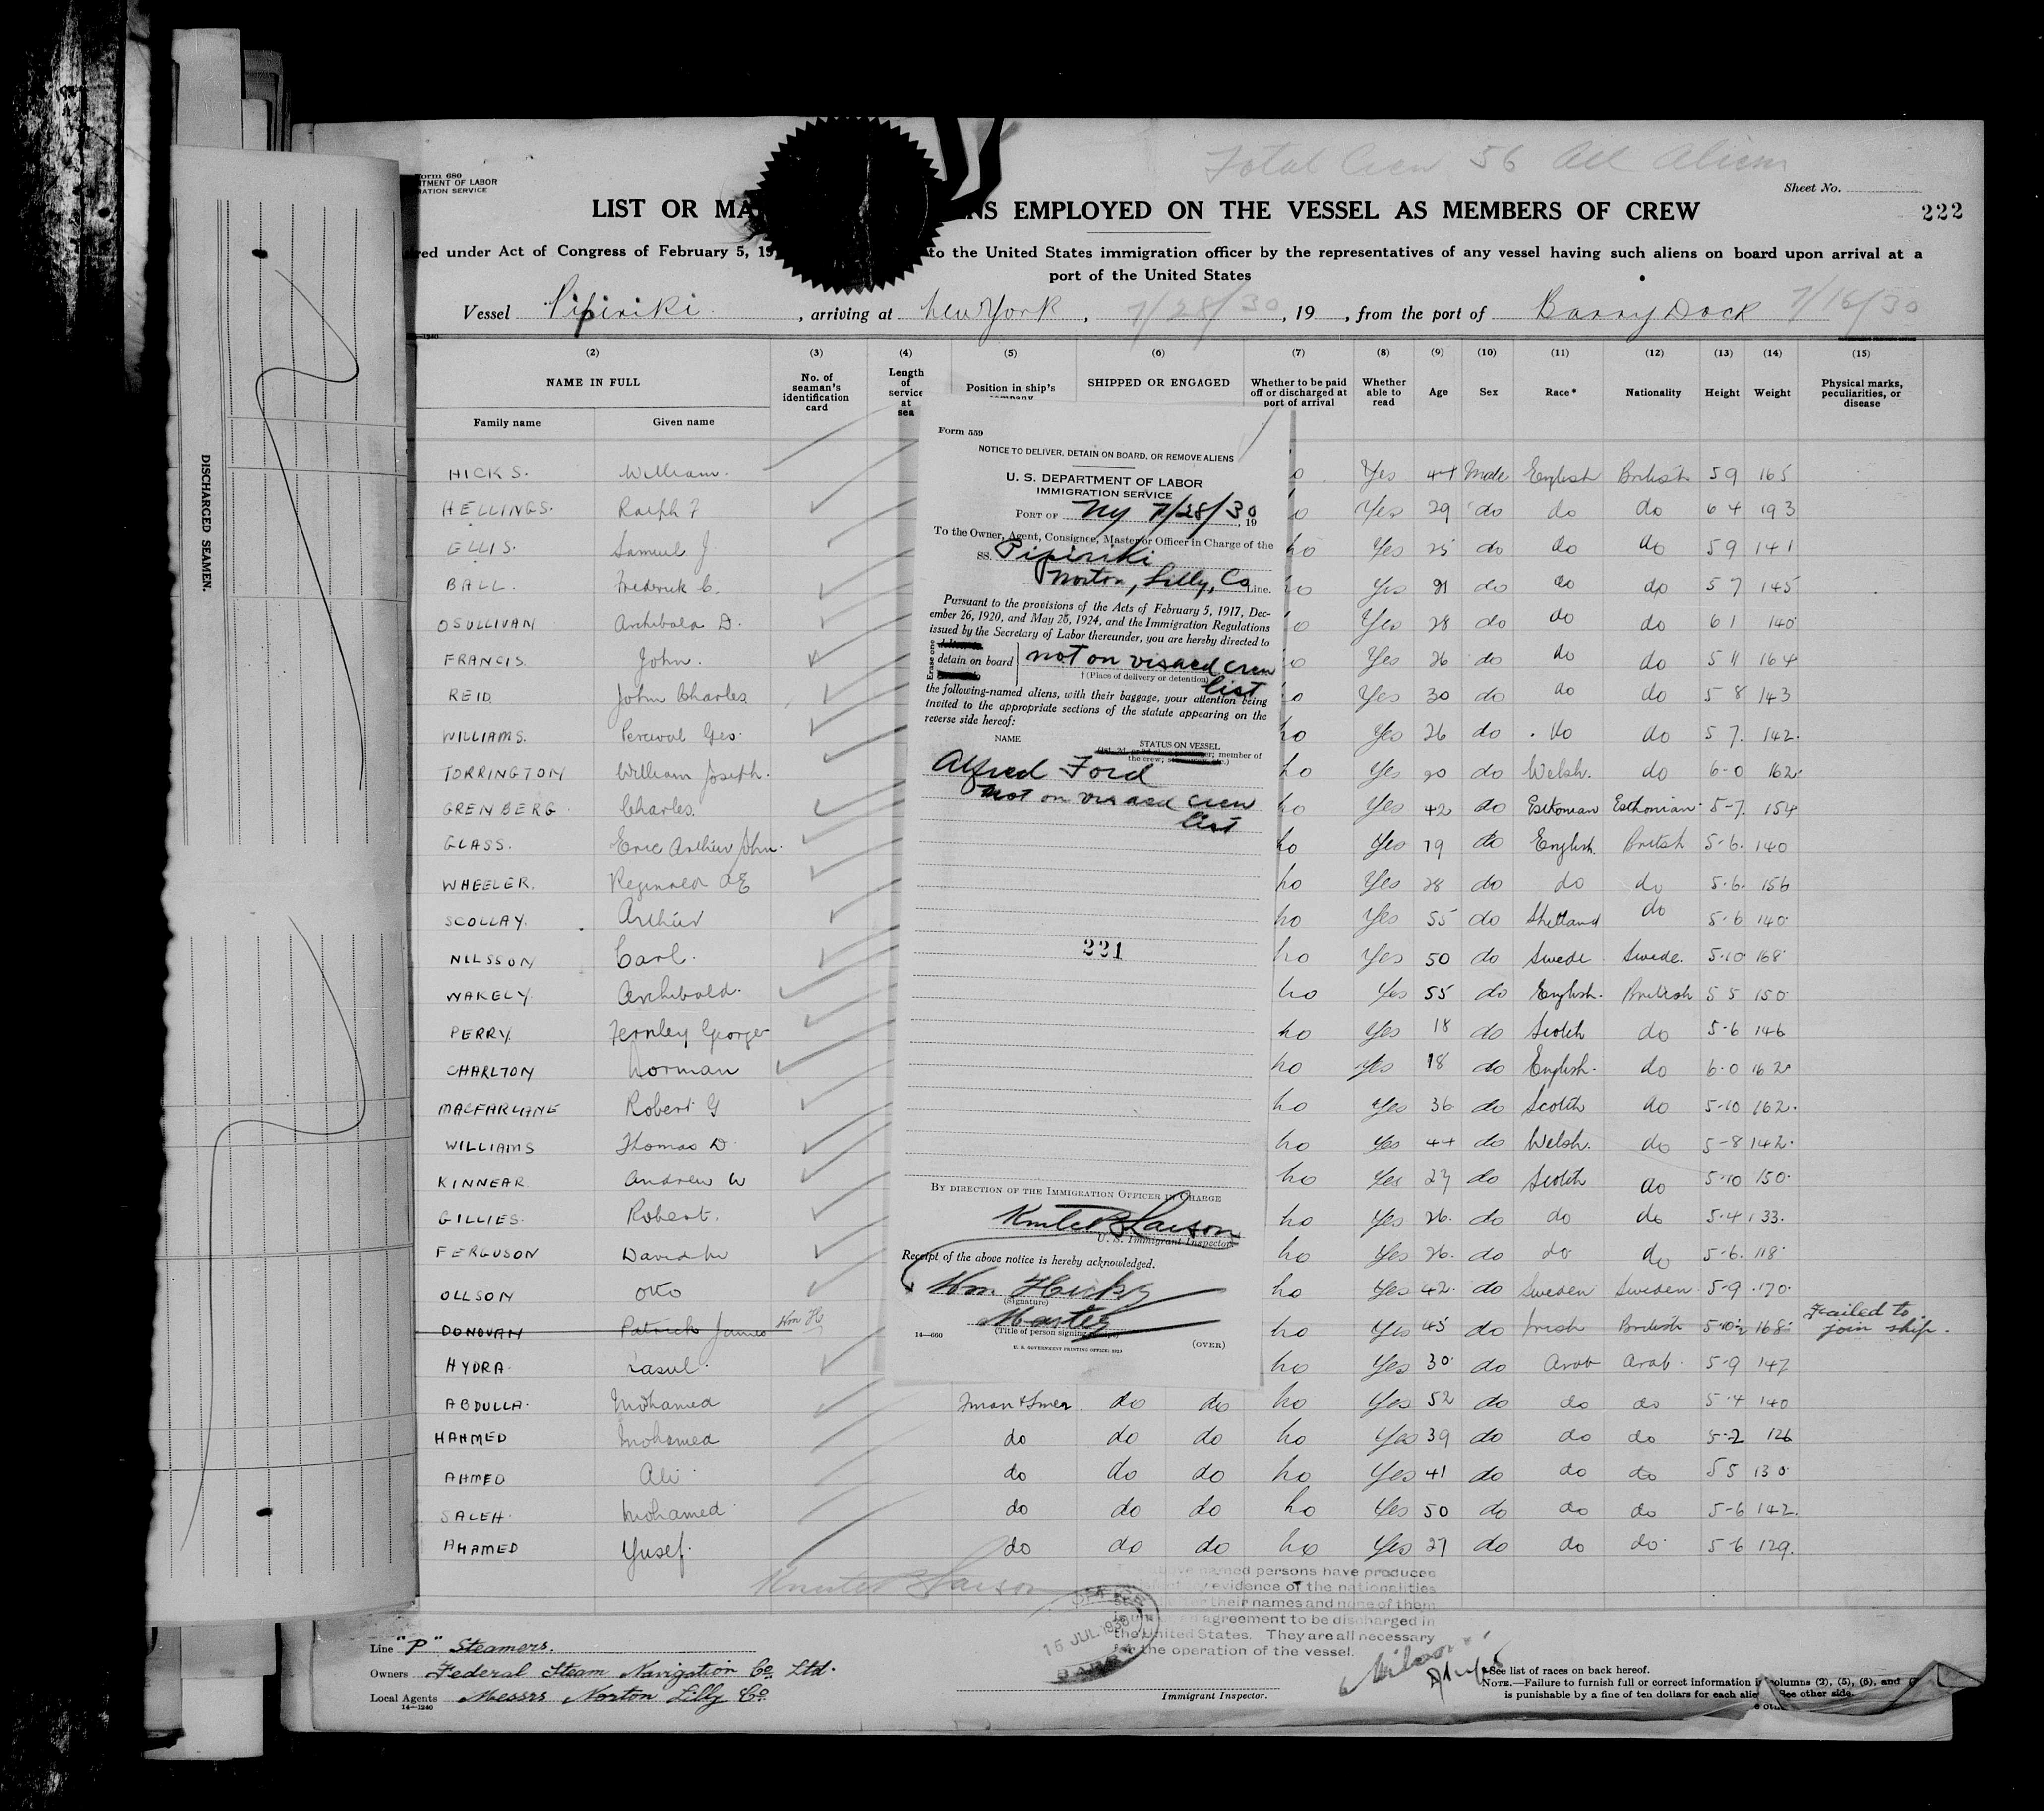 Total Crew 56 All Aliens
Form 680
TMENT OF LABOR
RATION SERVICE
Sheet No.
LIST OR MA NS EMPLOYED ON THE VESSEL AS MEMBERS OF CREW
222
red under Act of Congress of February 5, 19 to the United States immigration officer by the representatives of any vessel having such aliens on board upon arrival at a
port of the United States
Vessel Pipiriki , arriving at New York , 7/28/30 , 19 , from the port of Barry Dock 7/16/30
(2) (3) (4) (5) (6) (7) (8) (9) (10) (11) (12) (13) (14) (15)
NAME IN FULL No. of seaman's identification card Length of service at sea Position in ship's company SHIPPED OR ENGAGED Whether to be paid off or discharged at port of arrival Whether able to read Age Sex Race* Nationality Height Weight Physical marks, peculiarities, or disease
Family name Given name
HICKS. William. o Yes 44 Male English British 5 9 165
HELLINGS. Ralph F o Yes 29 do do do 6 4 193
ELLIS. Samuel J. no Yes 25 do do do 5 9 141
BALL. Frederick C. o Yes 21 do do do 5 7 145
OSULLIVAN Archibald D. o Yes 28 do do do 6 1 140
FRANCIS. John. o Yes 26 do do do 5 11 164
REID John Charles. o Yes 30 do do do 5 8 143
WILLIAMS. Percival Geo. no Yes 26 do do do 5 7. 142.
TORRINGTON William Joseph. no Yes 20 do Welsh. do 6-0 162.
GRENBERG Charles. no Yes 42 do Esthonian Esthonian 5-7. 154
GLASS. Eric Arthur John. no Yes 19 do English British 5-6. 140
WHEELER. Reginald AE no Yes 28 do do do 5-6. 156
SCOLLAY. Arthur no Yes 55 do Shetland do 5-6 140
NILSSON Carl. no Yes 50 do Swede Swede. 5-10 168
WAKELY Archibald. no Yes 55 do English. British 5 5 150
PERRY. Fernley George no Yes 18 do Scotch do 5-6 146
CHARLTON Norman no Yes 18 do English. do 6-0 162
MACFARLANE Robert G no Yes 36 do Scotch do 5-10 162.
WILLIAMS Thomas D no Yes 44 do Welsh. do 5-8 142.
KINNEAR. Andrew W no Yes 27 do Scotch do 5-10 150.
GILLIES. Robert. no Yes 26. do do do 5-4 133.
FERGUSON David no Yes 26. do do do 5-6. 118
OLLSON Otto no Yes 42. do Sweden Sweden 5-9 170.
DONOVAN Patrick James Wm H no Yes 45 do Irish British 5-10½ 168 Failed to join ship.
HYDRA Lasul. no Yes 30 do Arab Arab. 5-9 147
ABDULLA. Mohamed do do no Yes 52 do do do 5-4 140
HAHMED Mohamed do do do no Yes 39 do do do 5-2 126
AHMED Ali do do do no Yes 41 do do do 5 5 130
SALEH. Mohamed do do do no Yes 50 do do do 5-6 142.
AHAMED Yusef. do do do no Yes 27 do do do 5-6 129.
Form 559
NOTICE TO DELIVER, DETAIN ON BOARD, OR REMOVE ALIENS
U. S. DEPARTMENT OF LABOR
IMMIGRATION SERVICE
PORT OF NY 7/28/30, 19
To the Owner, Agent, Consignee, Master or Officer in Charge of the
SS. Pipiriki
Norton, Lilly, Co Line.
Pursuant to the provisions of the Acts of February 5, 1917, Dec-
ember 26, 1920, and May 26, 1924, and the Immigration Regulations
issued by the Secretary of Labor thereunder, you are hereby directed to
Erase one
detain on board not on visaed crew list
† (Place of delivery or detention)
the following-named aliens, with their baggage, your attention being
invited to the appropriate sections of the statute appearing on the
reverse side hereof:
NAME STATUS ON VESSEL
member of the crew;
Alfred Ford
not on visaed crew
list
221
BY DIRECTION OF THE IMMIGRATION OFFICER IN CHARGE
Knute B Larson
U. S. Immigrant Inspector
Receipt of the above notice is hereby acknowledged.
Wm. Hicks
(Signature)
Master
(Title of person signing)
14—660
(OVER)
U. S. GOVERNMENT PRINTING OFFICE: 1929
Knute B Larson
named persons have produced
evidence of the nationalities
their names and none of them
agreement to be discharged in
the United States. They are all necessary
for the operation of the vessel.
15 JUL 1930
Line "P" Steamers.
Owners Federal Steam Navigation Co Ltd.
Local Agents Messrs Norton Lilly Co
14—1240
Immigrant Inspector.
See list of races on back hereof.
NOTE.—Failure to furnish full or correct information in columns (2), (5), (6), and
is punishable by a fine of ten dollars for each alien. See other side.
DISCHARGED SEAMEN.